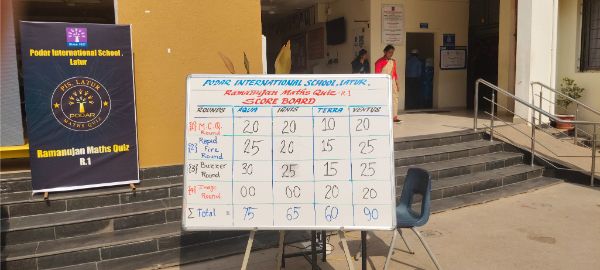 Podar International School,
Latur
PIS LATUR
PODAR
MATHS QUIZ
Ramanujan Maths Quiz
R.1
PODAR INTERNATIONAL SCHOOL, LATUR.
Ramanujan Maths Quiz R.1
SCORE BOARD
ROUNDS AQUA IGNIS TERRA VENTUS
[1] M.C.Q. Round 20 20 10 20
[2] Rapid Fire Round 25 20 15 25
[3] Buzzer Round 30 25 15 25
[4] Image Round 00 00 20 20
Σ Total = 75 65 60 90